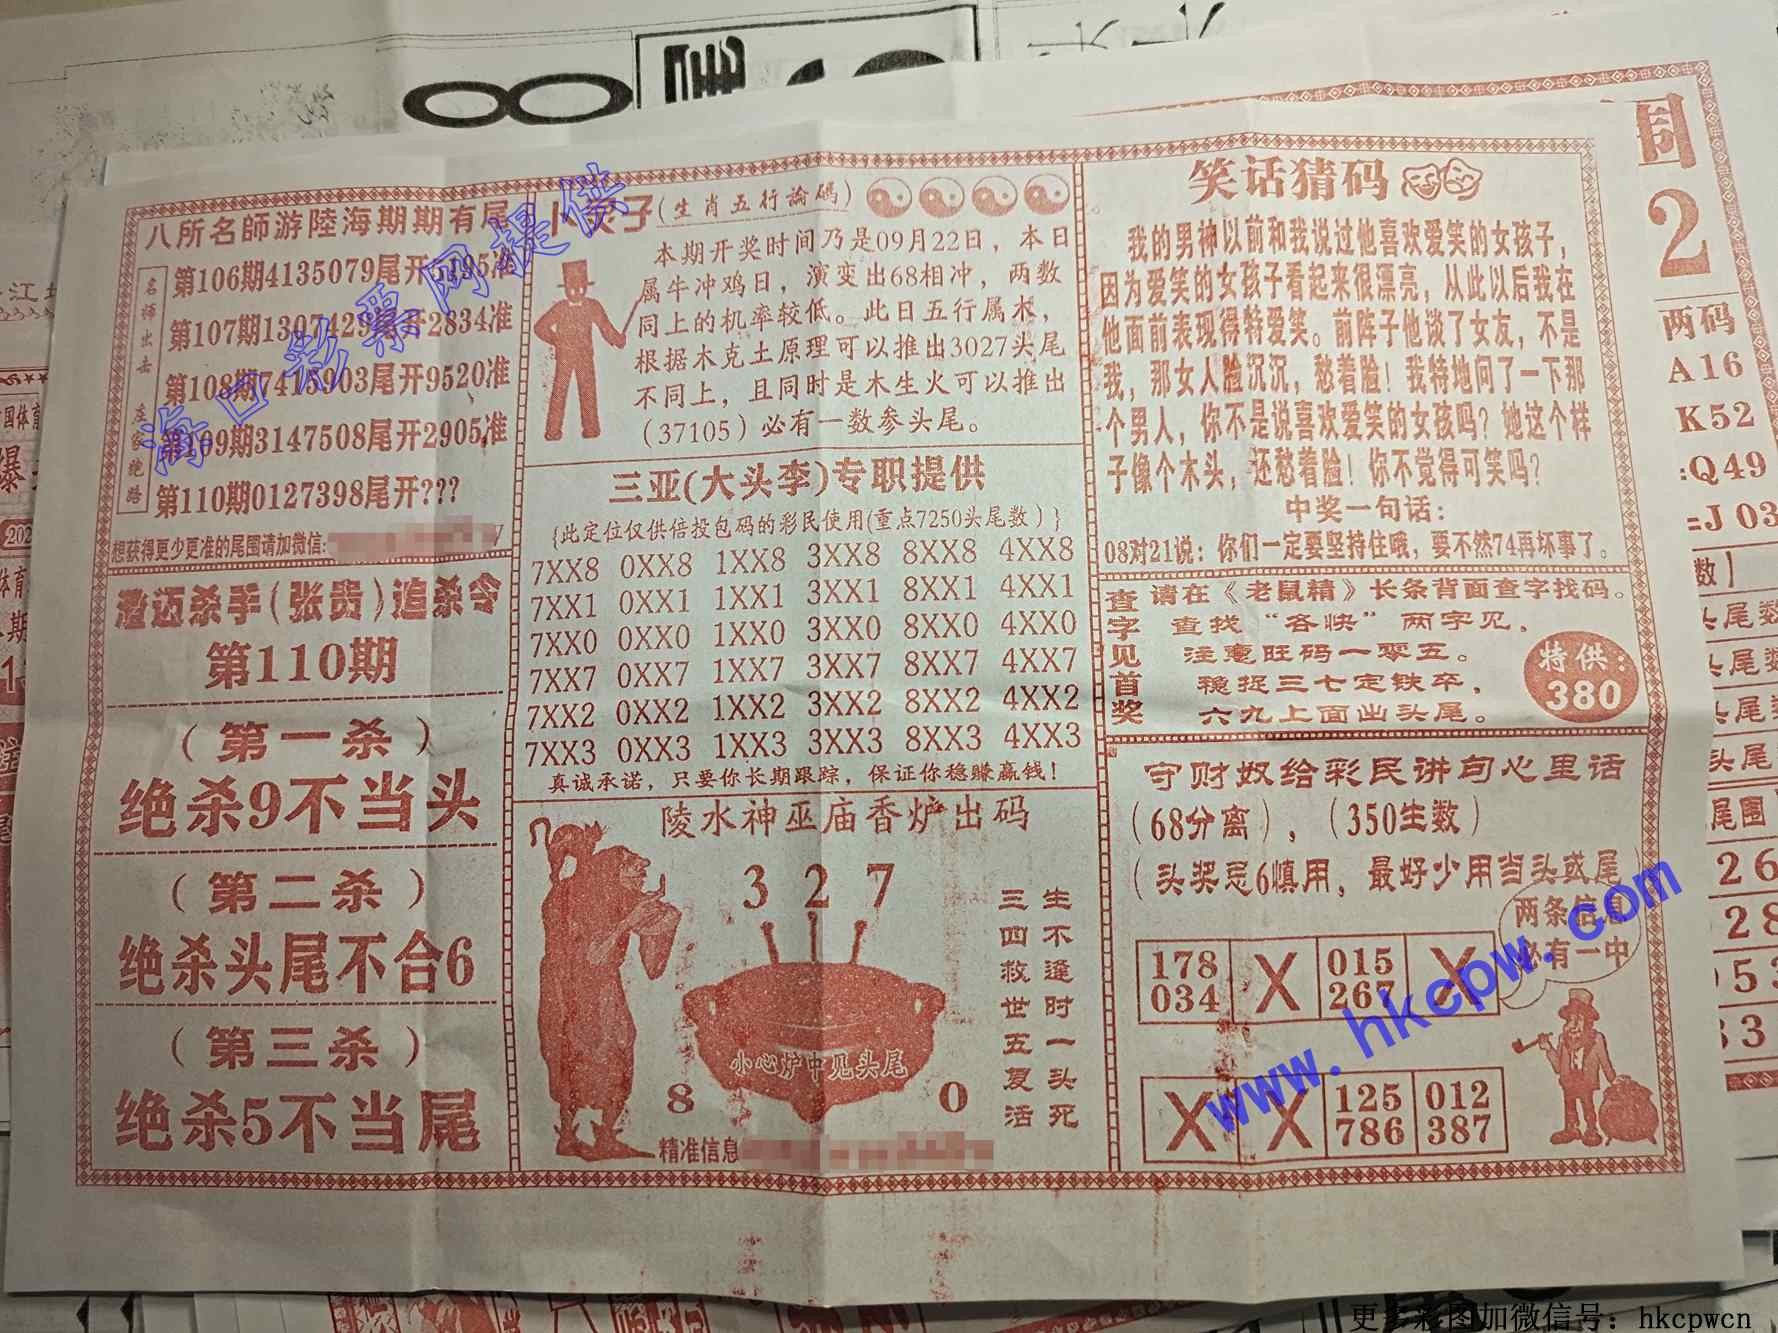 八所名師游陸海期期有尾
名師出击 庄家绝路
第106期4135079尾开
第107期
尾开2834准
第108期
903尾开9520准
第109期3147508尾开2905准
第110期0127398尾开???
想获得更少更准的尾围请加微信:
澄迈杀手(张贵)追杀令
第110期
(第一杀)
绝杀9不当头
(第二杀)
绝杀头尾不合6
(第三杀)
绝杀5不当尾
卜灵子(生肖五行論碼)
本期开奖时间乃是09月22日，本日
属牛冲鸡日，演变出68相冲，两数
同上的机率较低。此日五行属木，
根据木克土原理可以推出3027头尾
不同上，且同时是木生火可以推出
(37105)必有一数参头尾。
三亚(大头李)专职提供
{此定位仅供倍投包码的彩民使用(重点7250头尾数)}
7XX8 0XX8 1XX8 3XX8 8XX8 4XX8
7XX1 0XX1 1XX1 3XX1 8XX1 4XX1
7XX0 0XX0 1XX0 3XX0 8XX0 4XX0
7XX7 0XX7 1XX7 3XX7 8XX7 4XX7
7XX2 0XX2 1XX2 3XX2 8XX2 4XX2
7XX3 0XX3 1XX3 3XX3 8XX3 4XX3
真诚承诺，只要你长期跟踪，保证你稳赚赢钱!
陵水神巫庙香炉出码
3 2 7
小心炉中见头尾
8 0
生不逢时一头死
三四救世五复活
精准信息
笑话猜码
我的男神以前和我说过他喜欢爱笑的女孩子，
因为爱笑的女孩子看起来很漂亮，从此以后我在
他面前表现得特爱笑。前阵子他谈了女友，不是
我，那女人脸沉沉，愁着脸！我特地问了一下那
个男人，你不是说喜欢爱笑的女孩吗？她这个样
子像个木头，还愁着脸！你不觉得可笑吗？
中奖一句话：
08对21说：你们一定要坚持住哦，要不然74再坏事了。
查字见首奖
请在《老鼠精》长条背面查字找码。
查找“各快”两字见，
注意旺码一零五。
稳捉三七定铁卒，
六九上面出头尾。
特供：
380
守财奴给彩民讲句心里话
(68分离)，(350生数)
(头奖忌6慎用，最好少用当头或尾)
两条信息
必有一中
178 X 015 X
034 267
X X 125 012
786 387
两码
A16
K52
Q49
J03
海口彩票网提供
www.hkcpw.com
更多彩图加微信号：hkcpwcn